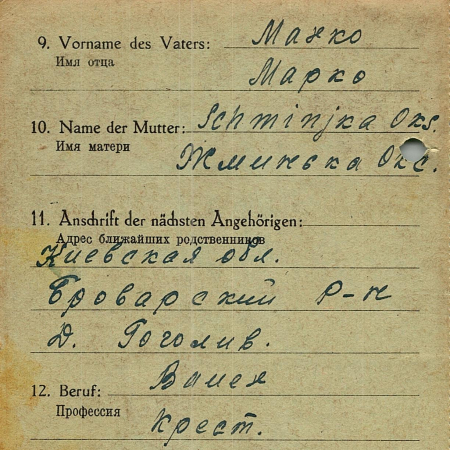 9. Vorname des Vaters: Матко
Имя отца
Марко
10. Name der Mutter: Schminjka Oks.
Имя матери
Жминька Окс.
11. Anschrift der nächsten Angehörigen:
Адрес ближайших родственников
Киевская обл.
Броварский р-н
д. Гоголив.
12. Beruf:
Профессия
крест.